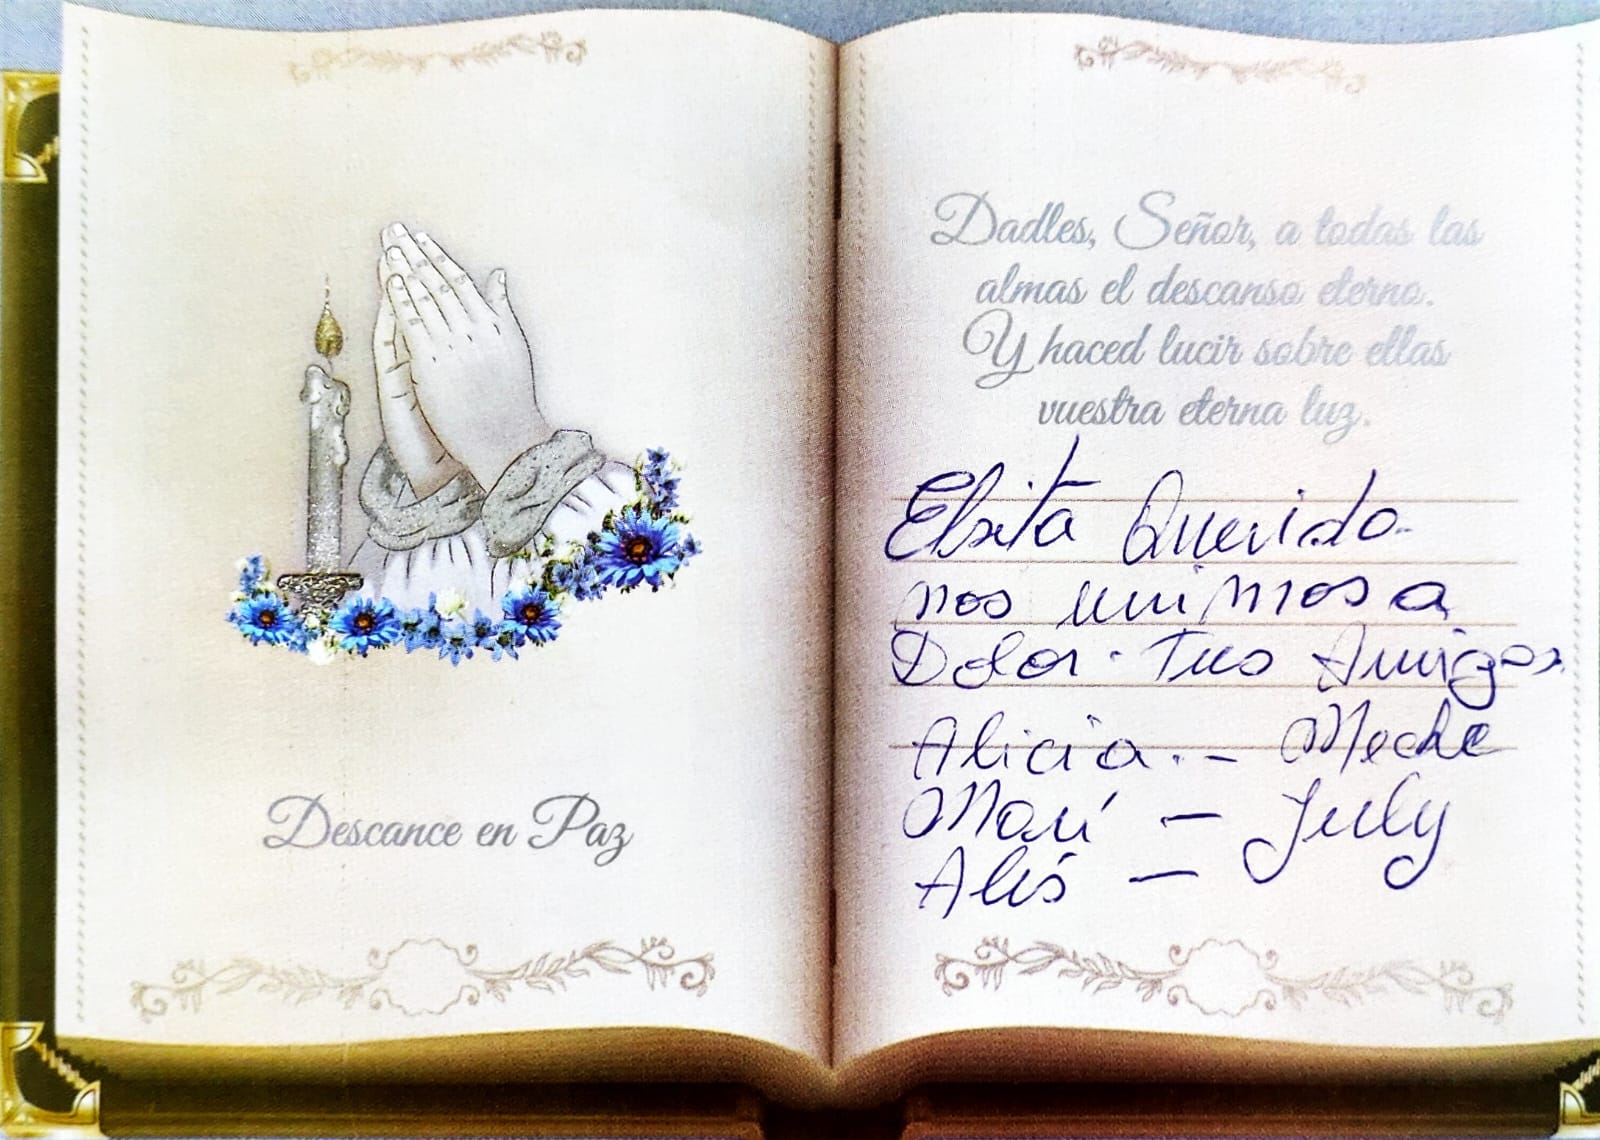 Descance en Paz
Dadles, Señor, a todas las
almas el descanso eterno.
Y haced lucir sobre ellas
vuestra eterna luz.
Elsita Querida
nos unimos a
Dolor. Tus Amigas.
Alicia. - Meche
Mari - July
Alis -